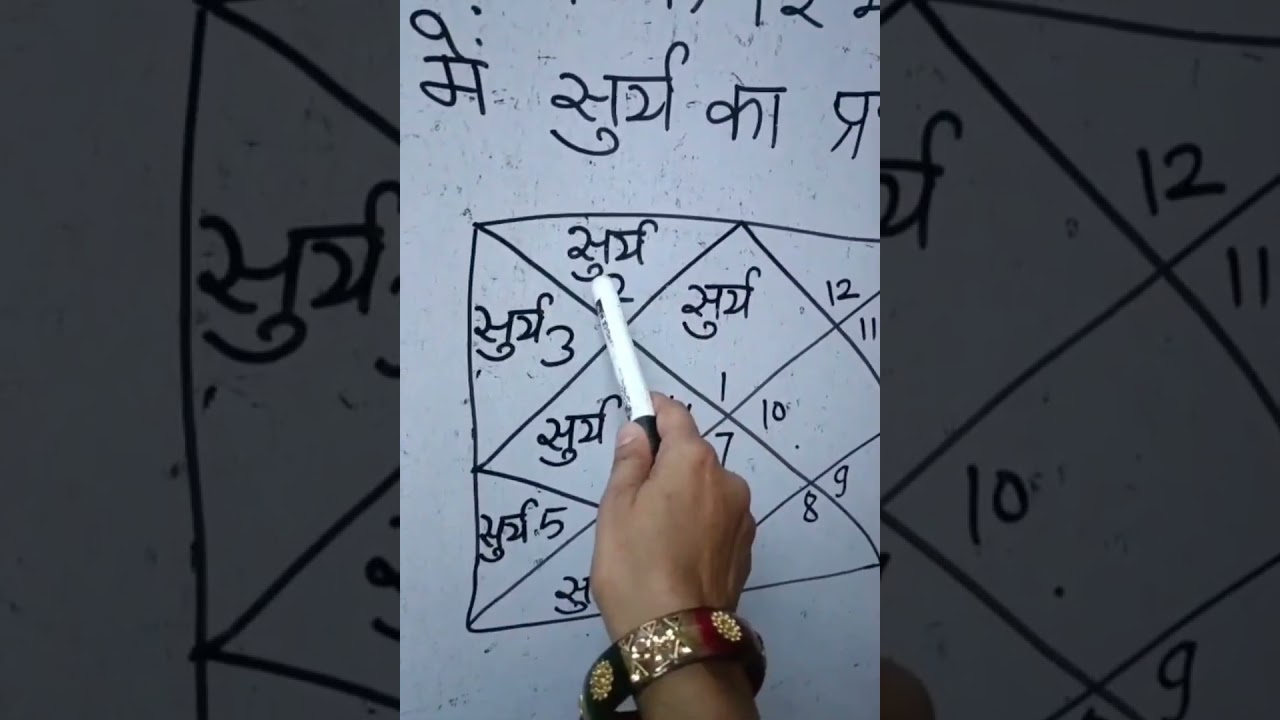 में सुर्य का
सुर्य
2
सुर्य
12
सुर्य 3
11
1
10
सुर्य
7
9
सुर्य 5
8